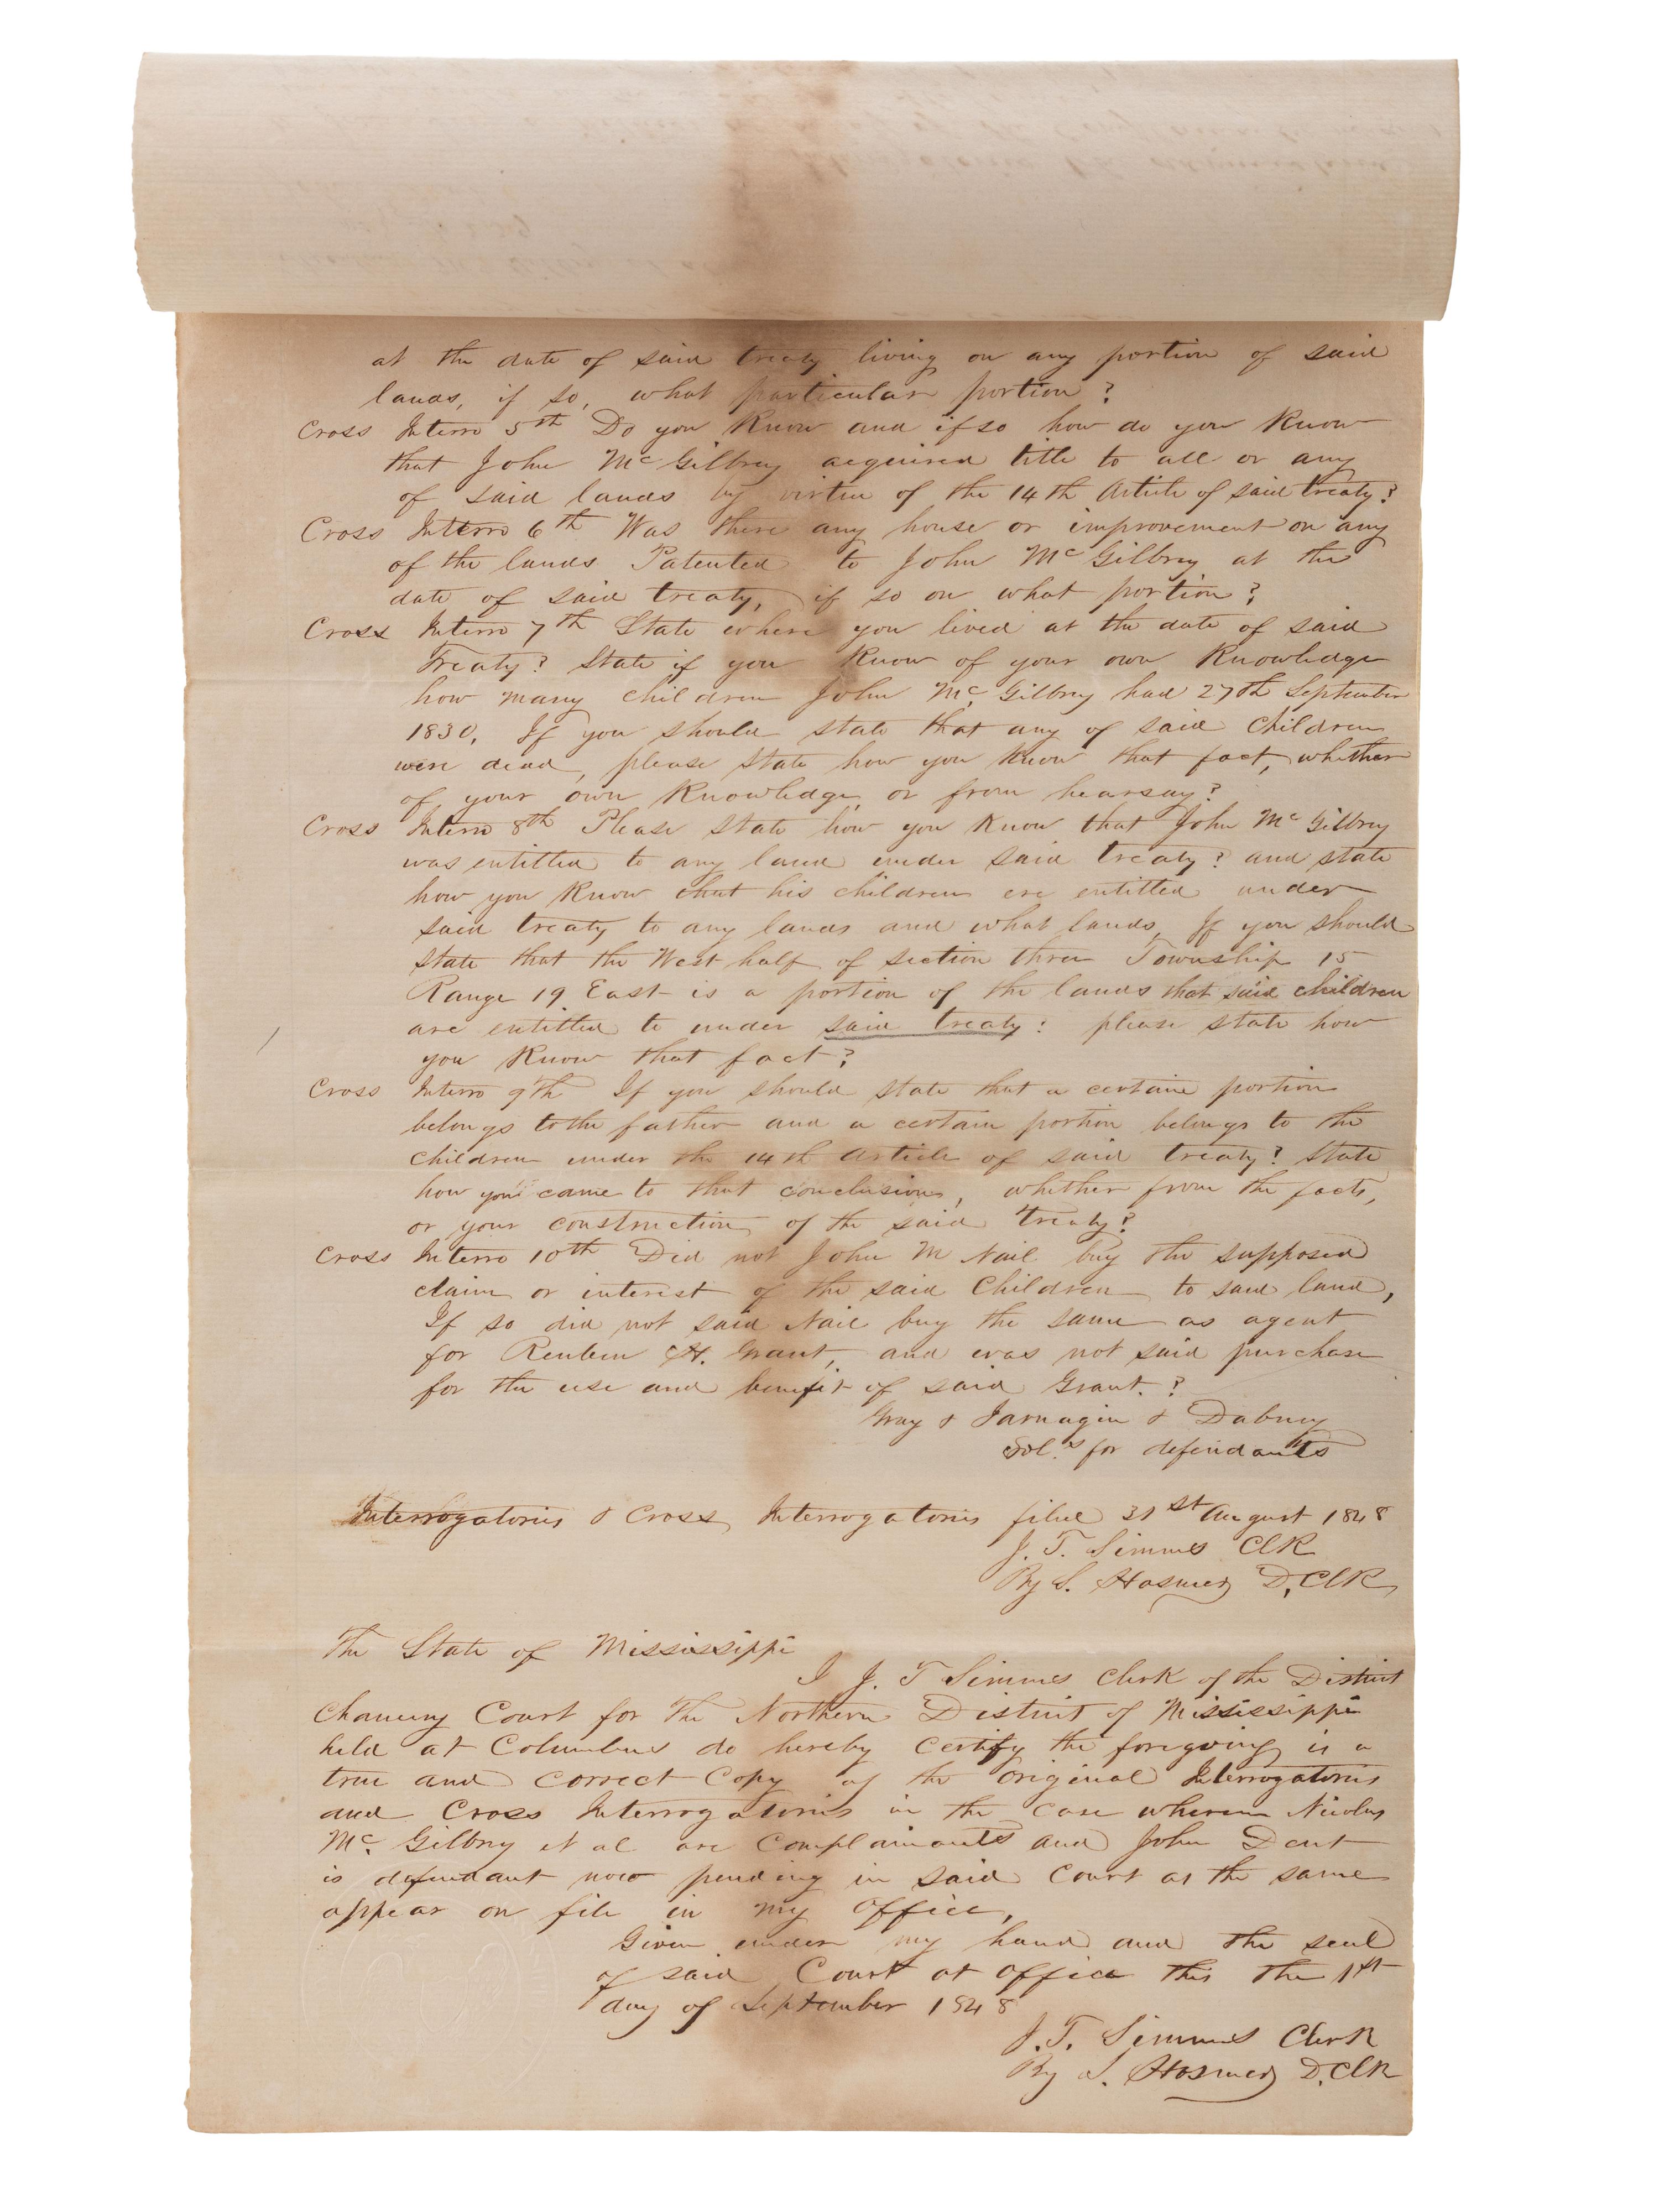 at the date of said treaty living on any portion of said
lands, if so, what particular portion?
Cross Interro 5th Do you Know and if so how do you Know
that John McGilbry acquired title to all or any
of said lands by virtue of the 14th Article of said treaty?
Cross Interro 6th Was there any house or improvement on any
of the lands Patented to John McGilbry at the
date of said treaty, if so on what portion?
Cross Interro 7th State where you lived at the date of said
Treaty? State if you Know of your own Knowledge
how many children John McGilbry had 27th September
1830. If you should state that any of said children
were dead, please state how you Know that fact, whether
of your own Knowledge or from hearsay?
Cross Interro 8th Please state how you Know that John McGilbry
was entitled to any land under said treaty? and state
how you Know that his children are entitled under
said treaty to any lands and what lands, If you should
state that the West half of section three Township 15
Range 19 East is a portion of the lands that said children
are entitled to under said treaty: please state how
you Know that fact?
Cross Interro 9th If you should state that a certain portion
belongs to the father and a certain portion belongs to the
children under the 14th Article of said treaty? State
how you came to that conclusion, whether from the facts,
or your construction of the said treaty?
Cross Interro 10th Did not John M Nail buy the supposed
claim or interest of the said Children to said land,
If so did not said Nail buy the same as agent
for Reuben H. Grant, and was not said purchase
for the use and benefit of said Grant.?
Gray & Jarnagin & Dabney
Sol.s for defendants
Interrogatories & Cross Interrogatories filed 31st August 1848
J. T. Simms ClK
By S. Hosmer D. ClK
The State of Mississippi
I J. T Simms Clerk of the District
Chancery Court for The Northern District of Mississippi
held at Columbus do hereby certify the foregoing is a
true and correct Copy of the original Interrogatories
and Cross Interrogatories in the case wherein
Mc.Gilbry et al are Complainants and John Dent
is defendant now pending in said Court as the same
appear on file in my office,
Given under my hand and the seal
of said Court at office this the 1st
day of September 1848
J. T. Simms Clerk
By S. Hosmer D. ClK